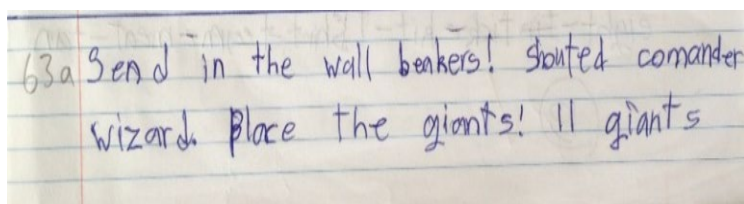 63a Send in the wall beakers! Shouted comander
wizard. Place the giants! 11 giants